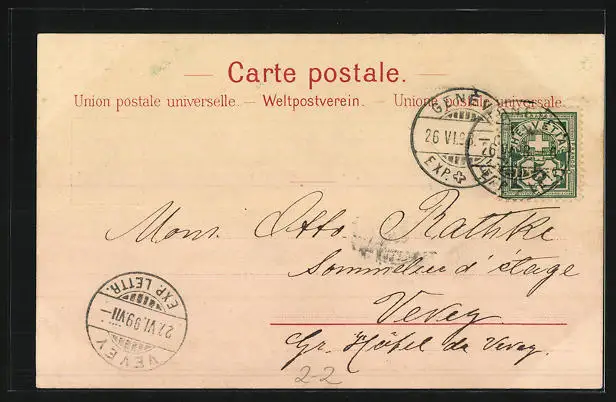 Carte postale.
Union postale universelle. — Weltpostverein. — Unione postale universale.
GENÈVE
26 VI.98.—
EXP.
HELVETIA
Mons. Otto Rathke
Sommelier d'étage
Vevey
Gr. Hôtel de Vevey.
EXP. LETTR.
27.VI.99.VII—
VEVEY
2-2